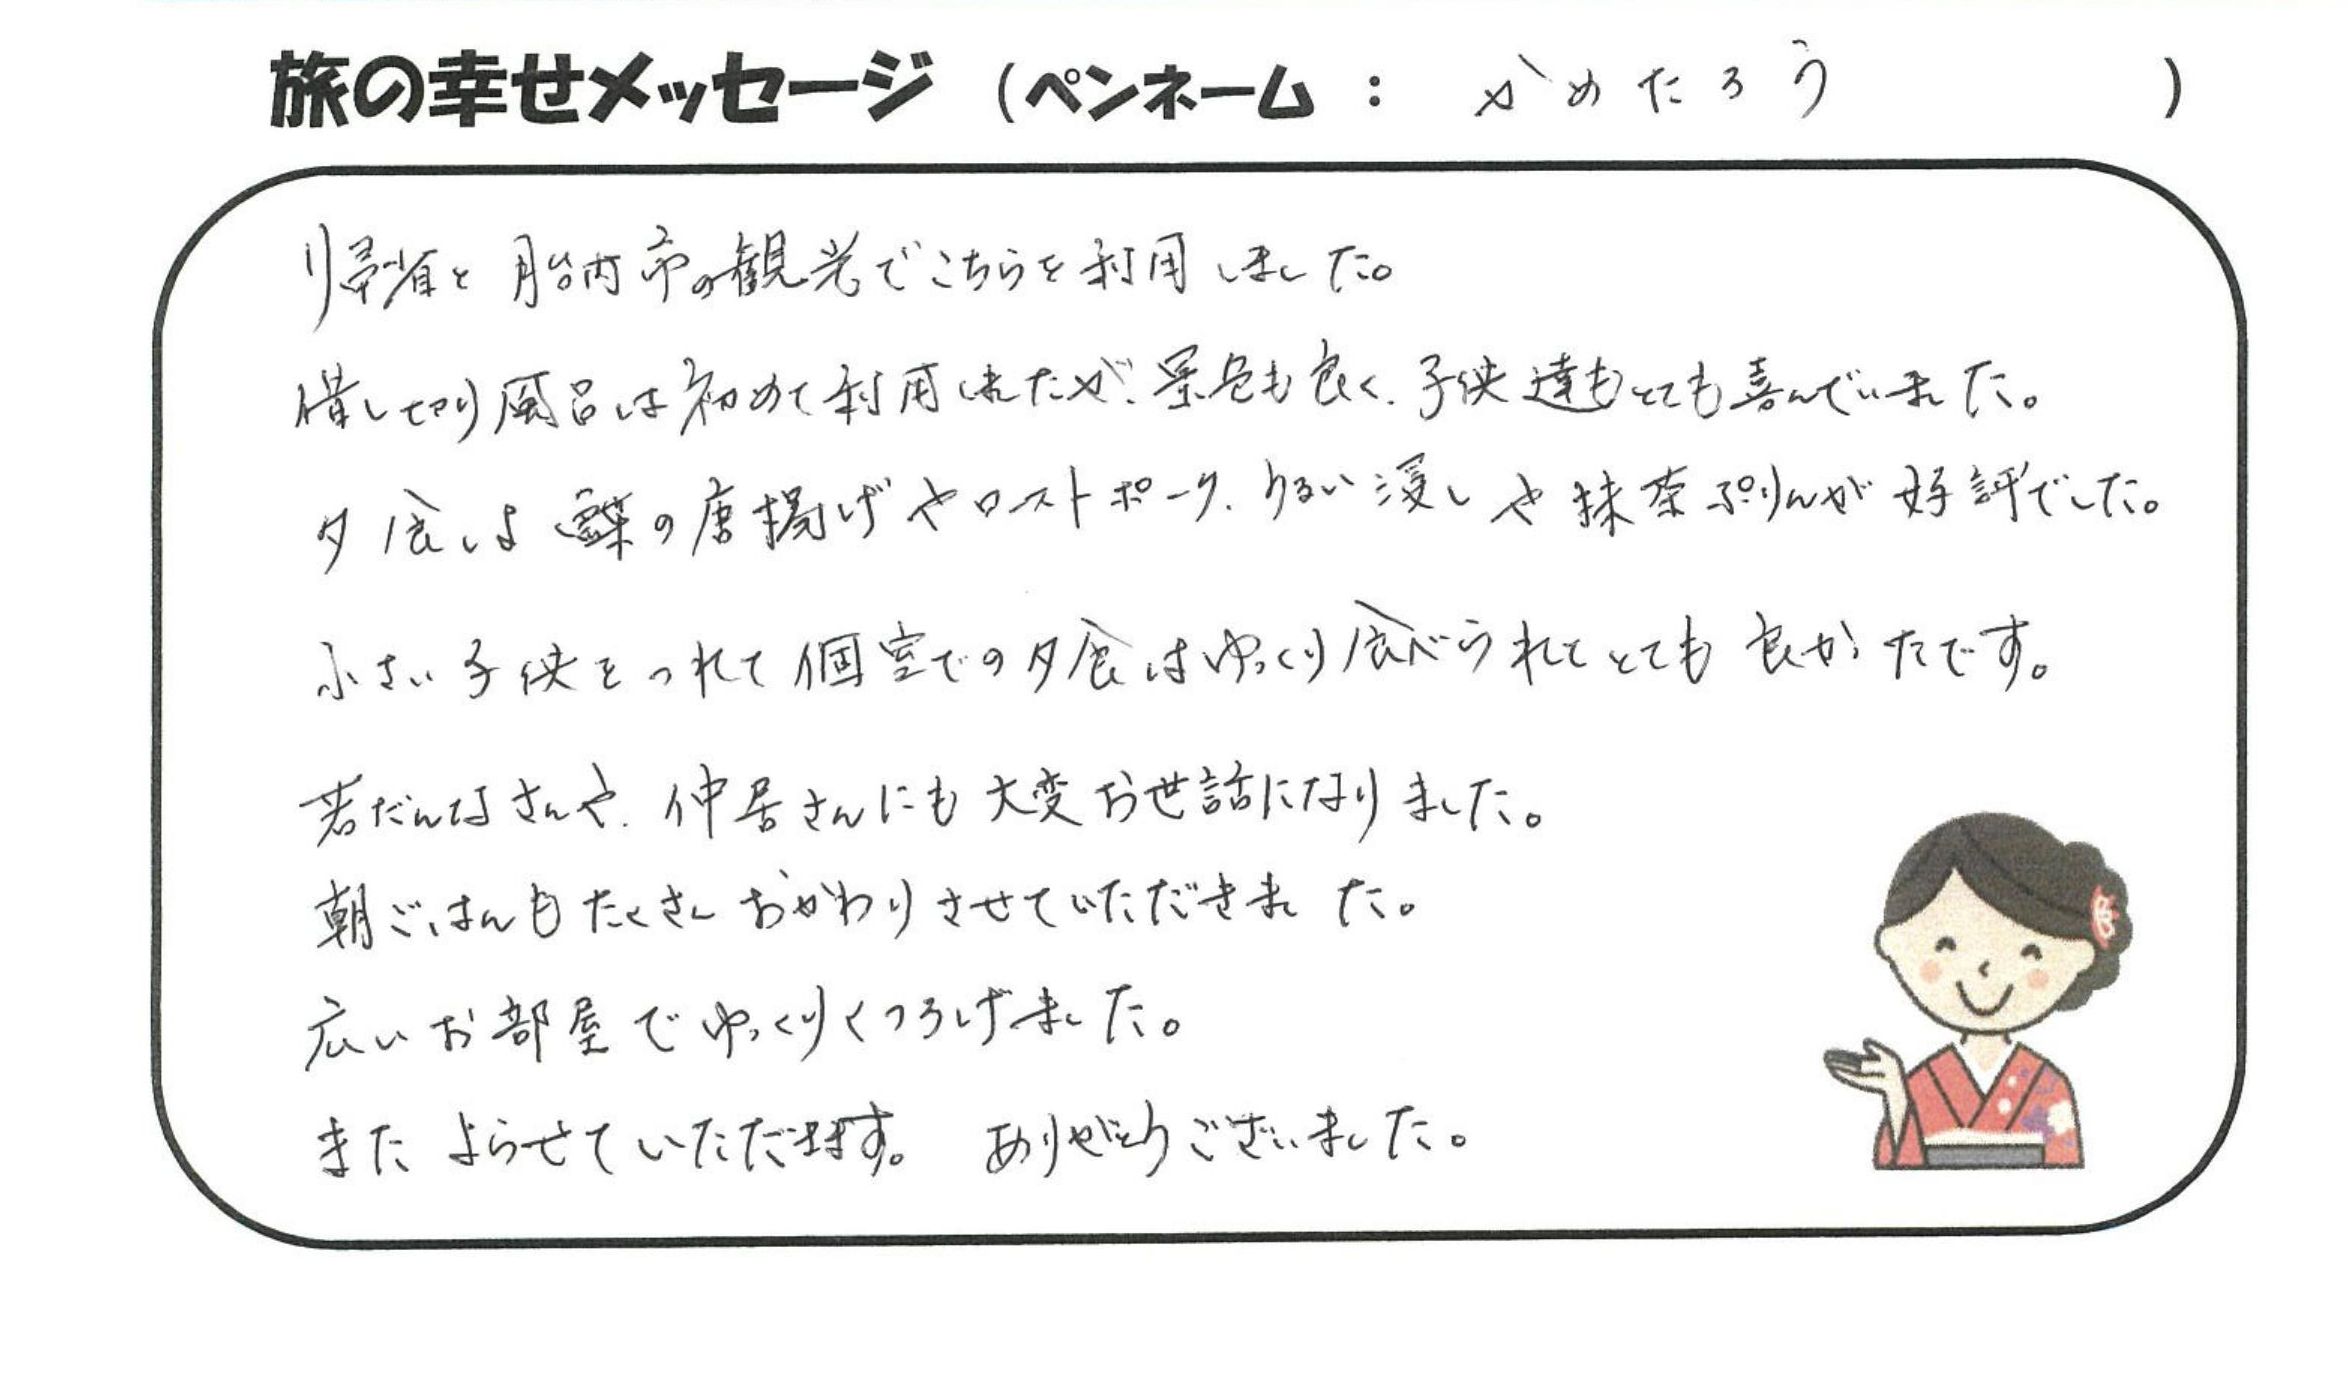 旅の幸せメッセージ (ペンネーム : かめたろう )
帰省と胎内市の観光でこちらを利用しました。
借し切り風呂は初めて利用しましたが、景色も良く、子供達もとても喜んでいました。
夕食は鰈の唐揚げやローストポーク、うるい浸しや抹茶ぷりんが好評でした。
小さい子供をつれて個室での夕食はゆっくり食べられてとても良かったです。
若だんなさんや、仲居さんにも大変お世話になりました。
朝ごはんもたくさんおかわりさせていただきました。
広いお部屋でゆっくりくつろげました。
またよらせていただきます。 ありがとうございました。